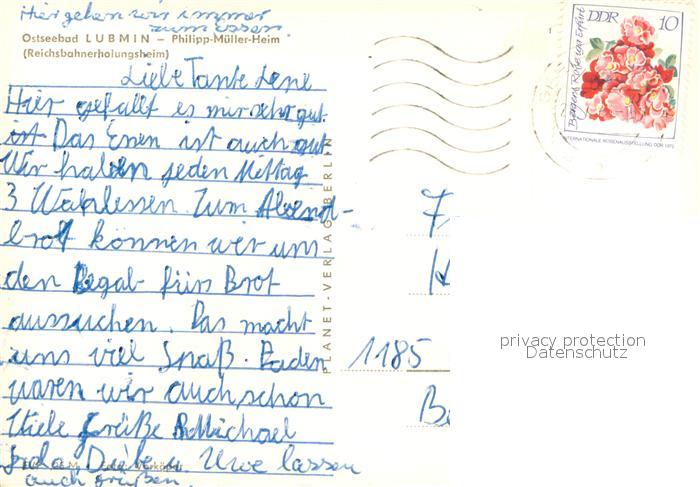 Hier gehen wir immer
zum essen
Ostseebad LUBMIN – Philipp-Müller-Heim
(Reichsbahnerholungsheim)
Liebe Tante Lene
Hier gefällt es mir sehr gut.
ist Das Essen ist auch gut
Wir haben jeden Mittag
3 Wahlessen. Zum Abend-
brot können wir uns
den Belag fürs Brot
aussuchen. Das macht
uns viel Spaß. Baden
waren wir auch schon
Viele Grüße Michael
u. Uwe lassen
auch grüßen.
PLANET-VERLAG BERLIN
DDR 10
Bergers Rose von Erfurt
INTERNATIONALE ROSENAUSSTELLUNG DDR 1972
1185
privacy protection
Datenschutz